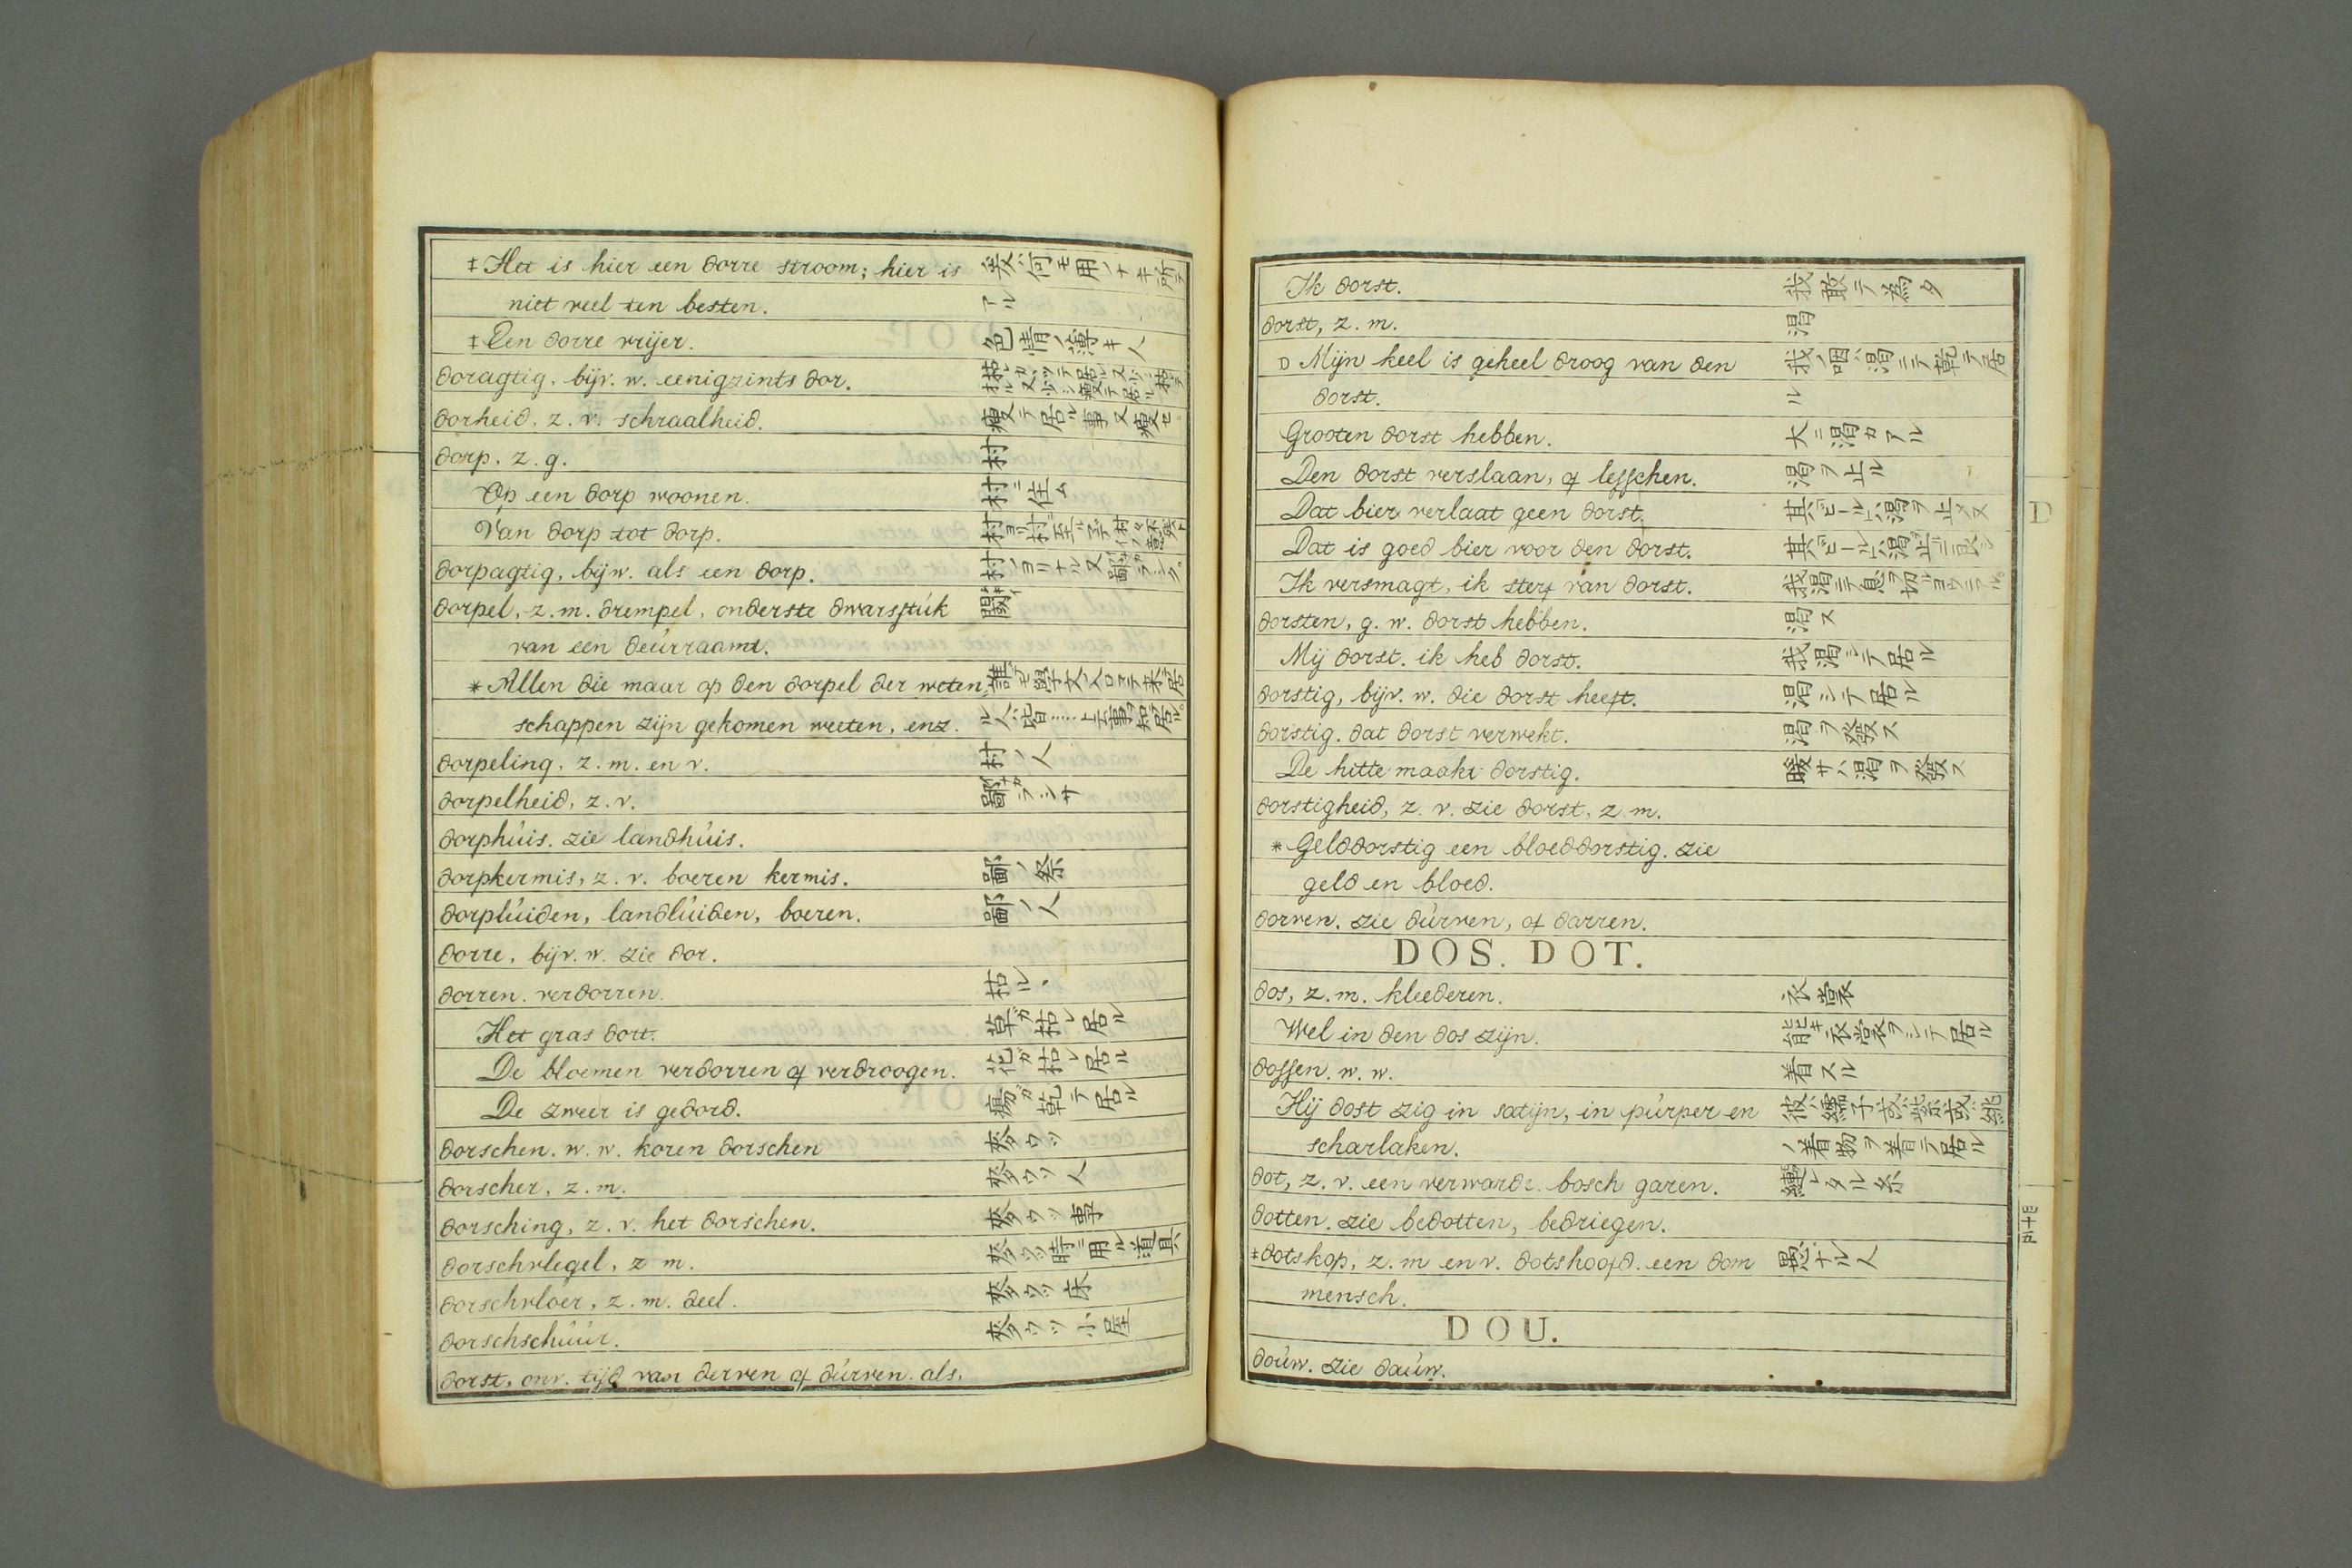 ‡ Het is hier een dorre stroom; hier is 爰ハ何モ用ノナキ所テ
niet veel ten besten. アル
‡ Een dorre vrijer. 色情ノ薄キ人
doragtig. bijv. w. eenigzints dor.
dorheid, z. v. schraalheid. 瘦テ居ル事又瘦セ
dorp. z. g. 村
Op een dorp woonen. 村ニ住ム
Van dorp tot dorp.
dorpagtig, bijw. als een dorp.
dorpel, z. m. drempel, onderste dwarsstúk 閾
van een deúrraamt.
* Allen die maar op den dorpel der weten,
schappen zijn gekomen weeten, enz.
dorpeling, z. m. en v. 村ノ人
dorpelheid, z. v.
dorphúis. zie landhúis.
dorpkermis, z. v. boeren kermis. 鄙ノ祭
dorplúiden, landlúiden, boeren. 鄙ノ人
dorre, bijv. w. zie dor.
dorren. verdorren. 枯ル、
Het gras dort. 草ガ枯レ居ル
De bloemen verdorren of verdroogen. 花ガ枯レ居ル
De zweer is gedord. 瘍ガ乾テ居ル
dorschen. w. w. koren dorschen 麥ウツ
dorscher, z. m. 麥ウツ人
dorsching, z. v. het dorschen. 麥ウツ事
dorschvlegel, z m. 麥ウツ時ニ用ル道具
dorschvloer, z. m. deel. 麥ウツ床
dorschschúúr. 麥ウツ小屋
dorst, onv. tijd van derven of dúrven. als,
Ik dorst. 我敢テ為タ
dorst, z. m. 渇
D Mijn keel is geheel droog van den 我ノ咽ハ渇ニテ乾テ居
dorst. ル
Grooten dorst hebben. 大ニ渇カアル
Den dorst verslaan, of lesschen. 渇ヲ止ル
Dat bier verlaat geen dorst. 其ビールハ渇ヲ止メヌ
Dat is goed bier voor den dorst.
Ik versmagt, ik sterf van dorst.
dorsten, g. w. dorst hebben. 渇ス
Mij dorst. ik heb dorst. 我渇シテ居ル
dorstig, bijv. w. die dorst heeft. 渇シテ居ル
dorstig. dat dorst verwekt. 渇ヲ發ス
De hitte maakt dorstig. 暖サハ渇ヲ發ス
dorstigheid, z. v. zie dorst, z m.
* Gelddorstig een bloeddorstig. zie
geld en bloed.
dorven. zie dúrven, of darren.
DOS. DOT.
dos, z. m. kleederen. 衣裳
Wel in den dos zijn. 能キ衣裳ヲシテ居ル
dossen. w. w. 着スル
Hij dost zig in satijn, in púrper en
scharlaken. ノ着物ヲ着テ居ル
dot, z. v. een verwarde bosch garen. 纏レタル糸
dotten. zie bedotten, bedriegen.
‡ dotskop, z. m en v. dotshoofd. een dom 愚ナル人
mensch.
DOU.
doúw. zie daúw.
D